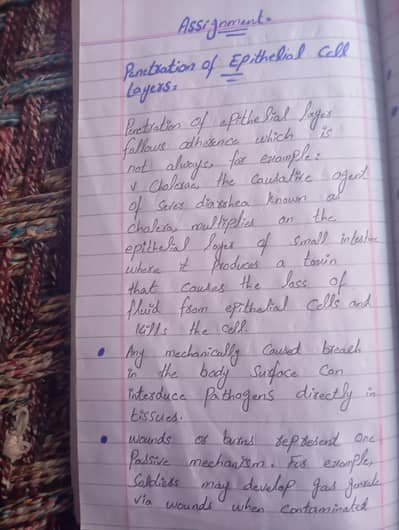 Assignment.
Penetration of Epithelial Cell
Layers:
Penetration of epithelial layer
follows adherence which is
not always, for example:
V Cholerae, the Causative agent
of Sever diarrhea known as
cholera, multiplies on the
epithelial layer of small intestine
where it Produces a toxin
that causes the loss of
fluid from epithelial cells and
kills the cell.
• Any mechanically Caused breach
in the body Surface Can
interduce Pathogens directly in
tissues.
• wounds or burns represent one
Passive mechanism. For example,
Soldiers may develop gas
via wounds when contaminated